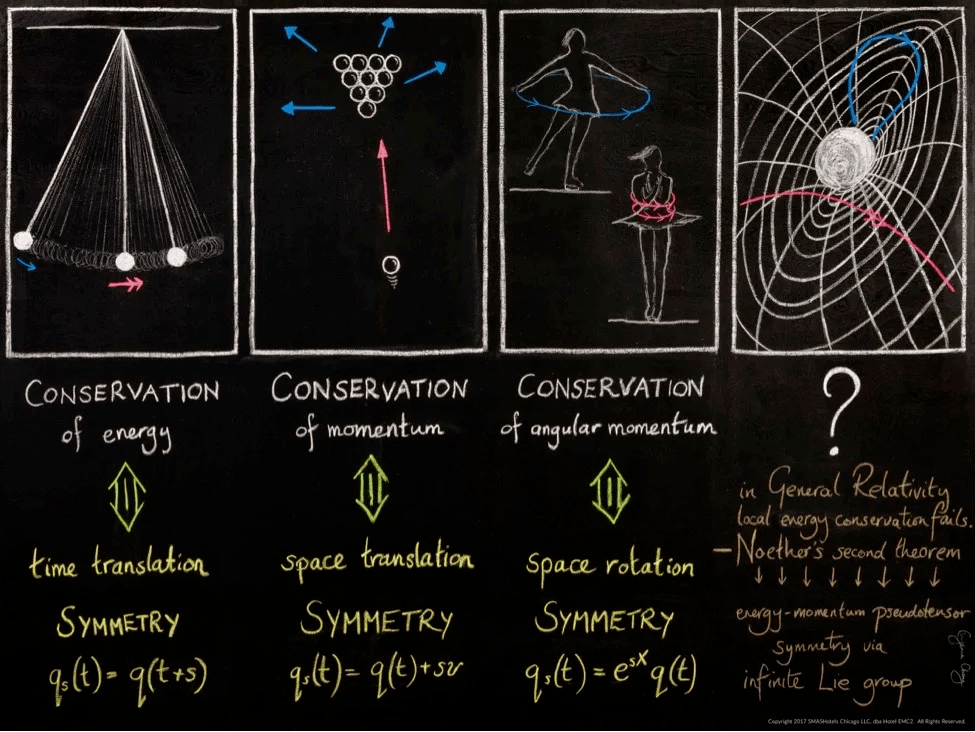 CONSERVATION
of energy
time translation
SYMMETRY
qₛ(t) = q(t+s)
CONSERVATION
of momentum
space translation
SYMMETRY
qₛ(t) = q(t)+sv
CONSERVATION
of angular momentum
space rotation
SYMMETRY
qₛ(t) = eˢˣ q(t)
?
in General Relativity
local energy conservation fails.
— Noether's second theorem
↓ ↓ ↓ ↓ ↓ ↓ ↓
energy-momentum pseudotensor
symmetry via
infinite Lie group
Copyright 2017 SMASHotels Chicago LLC, dba Hotel EMC2. All Rights Reserved.